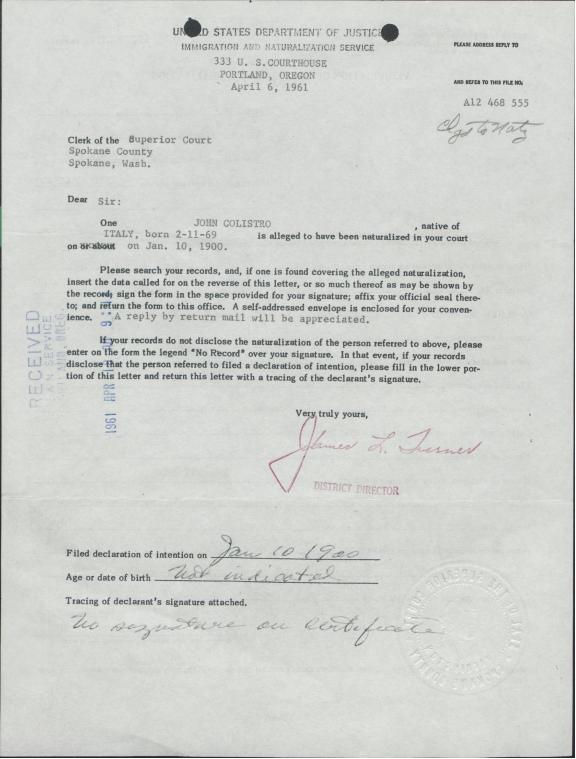 UNITED STATES DEPARTMENT OF JUSTICE
IMMIGRATION AND NATURALIZATION SERVICE
333 U. S.COURTHOUSE
PORTLAND, OREGON
April 6, 1961
PLEASE ADDRESS REPLY TO
AND REFER TO THIS FILE NO.
A12 468 555
Clerk of the Superior Court
Spokane County
Spokane, Wash.
Dear Sir:
One JOHN COLISTRO , native of
ITALY, born 2-11-69 is alleged to have been naturalized in your court
on or about on Jan. 10, 1900.
Please search your records, and, if one is found covering the alleged naturalization,
insert the data called for on the reverse of this letter, or so much thereof as may be shown by
the record; sign the form in the space provided for your signature; affix your official seal there-
to; and return the form to this office. A self-addressed envelope is enclosed for your conven-
ience. A reply by return mail will be appreciated.
If your records do not disclose the naturalization of the person referred to above, please
enter on the form the legend "No Record" over your signature. In that event, if your records
disclose that the person referred to filed a declaration of intention, please fill in the lower por-
tion of this letter and return this letter with a tracing of the declarant's signature.
RECEIVED
1961 APR
Very truly yours,
James L. Turner
DISTRICT DIRECTOR
Filed declaration of intention on Jan 10 1900
Age or date of birth Not indicated
Tracing of declarant's signature attached.
No signature on certificate